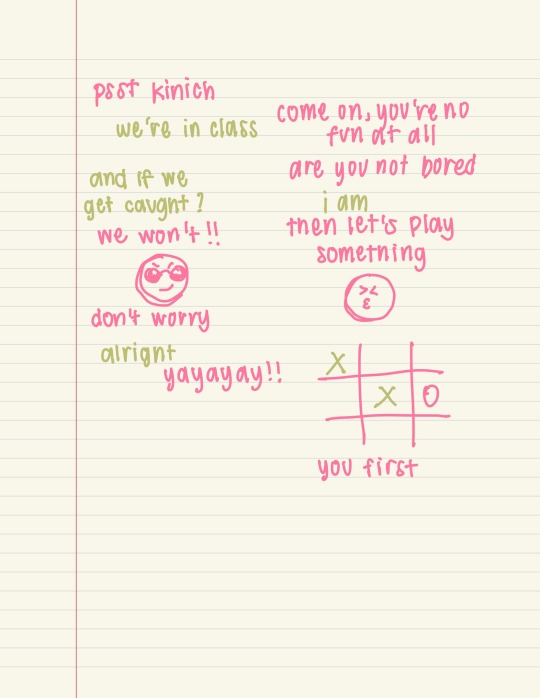 psst kinich
we're in class
come on, you're no
fun at all
are you not bored
i am
then let's play
something
and if we
get caught?
we won't!!
don't worry
alright
yayayay!!
X
X O
you first